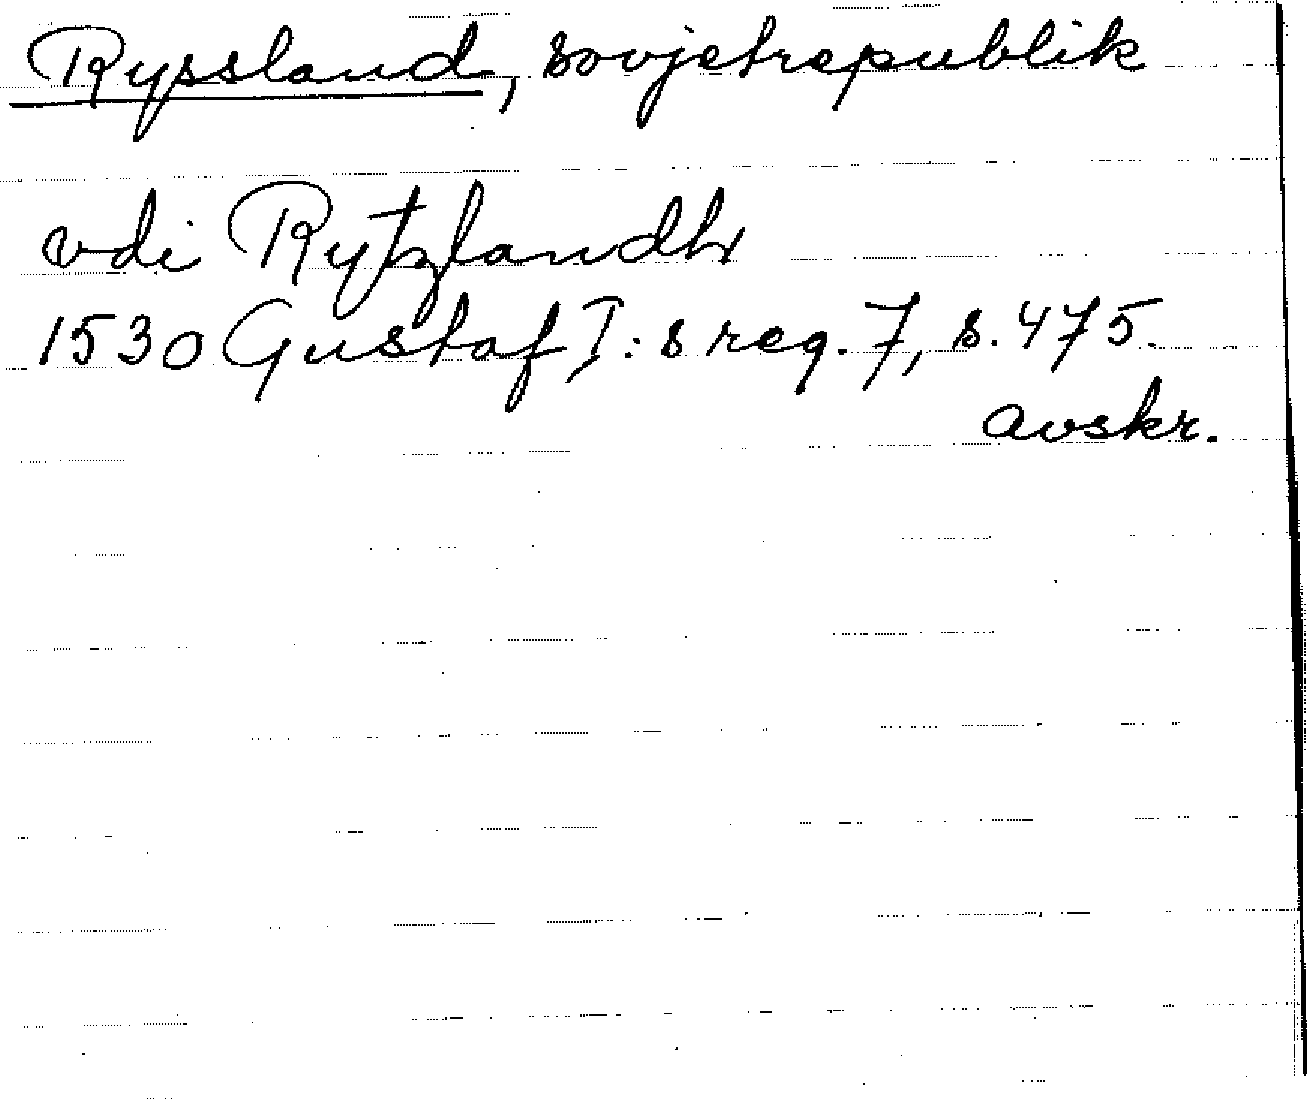 Ryssland, sovjetrepublik
vdi Rytzlandh
1530 Gustaf I:s reg. 7, s. 475.
avskr.